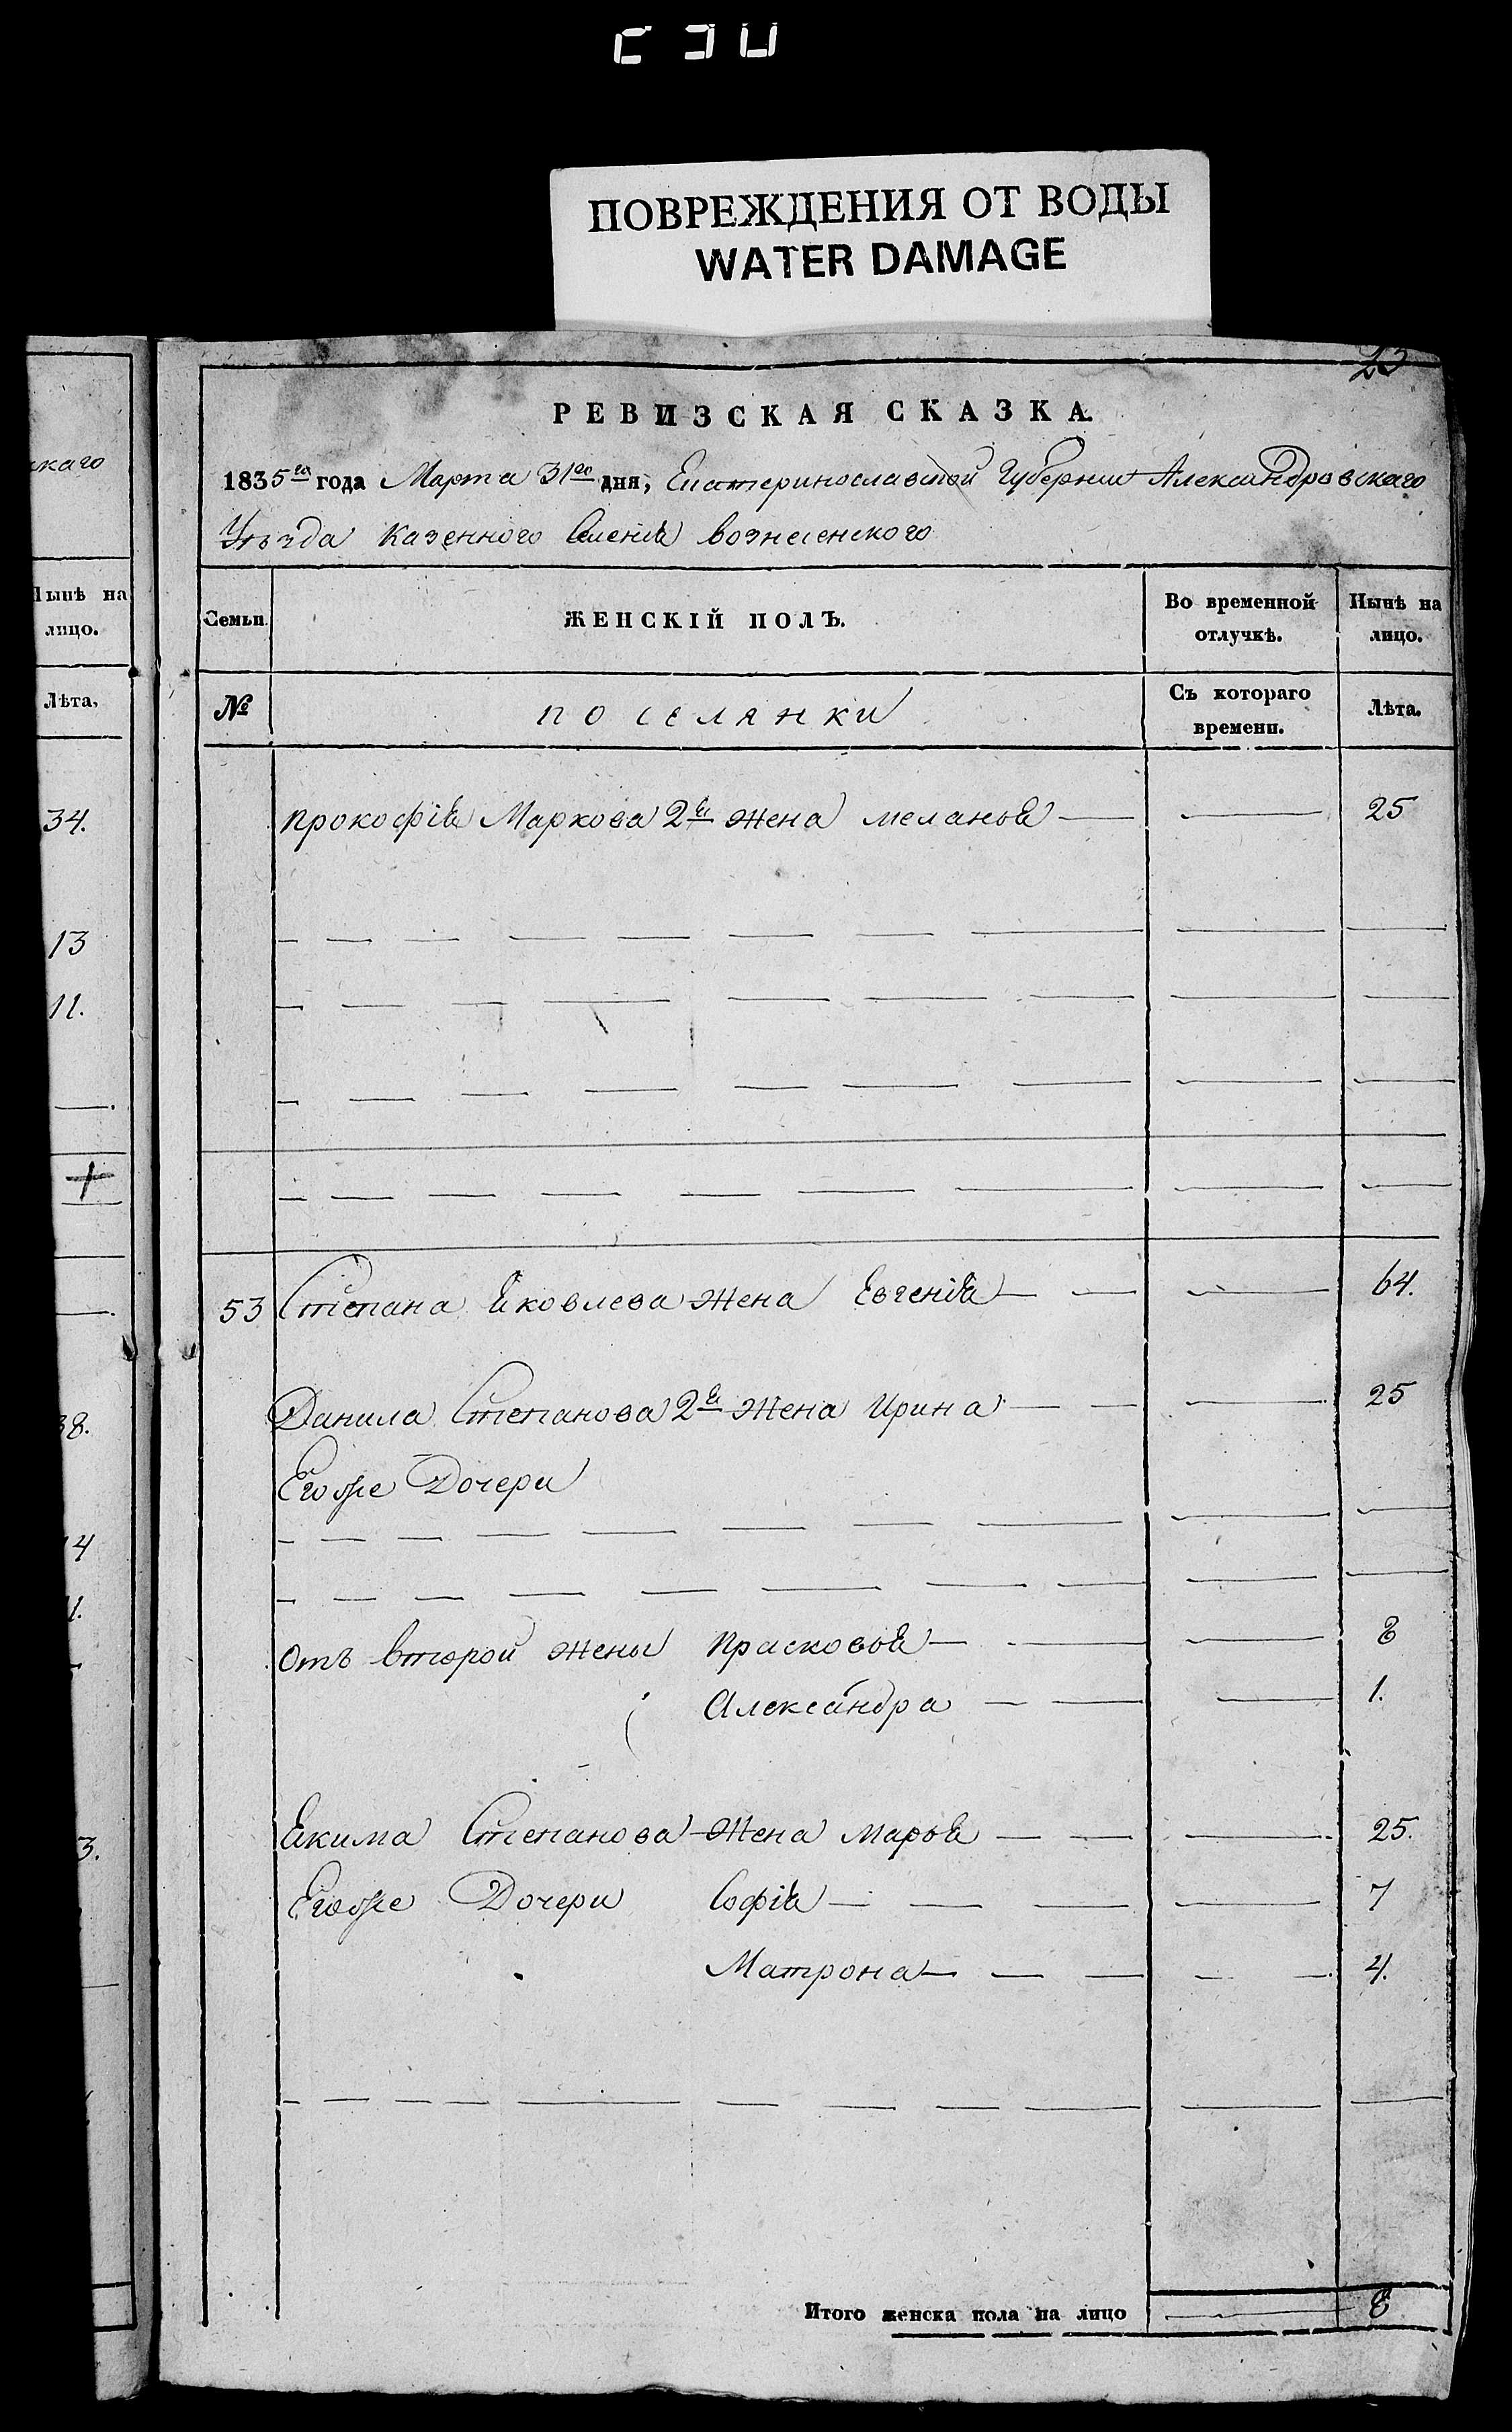 ПОВРЕЖДЕНИЯ ОТ ВОДЫ
WATER DAMAGE
скаго
Нынѣ на
лицо.
Лѣта,
34.
13
11.
38.
14
11.
3.
23
РЕВИЗСКАЯ СКАЗКА.
1835го года Марта 31го дня, Екатеринославской Губернии Александровскаго
Уѣзда Казенного Селения вознесенского
Семьи. ЖЕНСКІЙ ПОЛЪ. Во временной отлучкѣ. Нынѣ на лицо.
№ поселянки Съ котораго времени. Лѣта.
прокофія Маркова 2я жена меланья — — 25
53 Степана Яковлева жена Евгенія — — 64.
Данила Степанова 2я жена Ирина — — 25
Егоже Дочери
отъ второй жены прасковья — — 8
Александра — — 1.
Якима Степанова жена марья — — 25.
Егоже Дочери Софія — — 7
Матрона — — 4.
Итого женска пола на лицо — 8